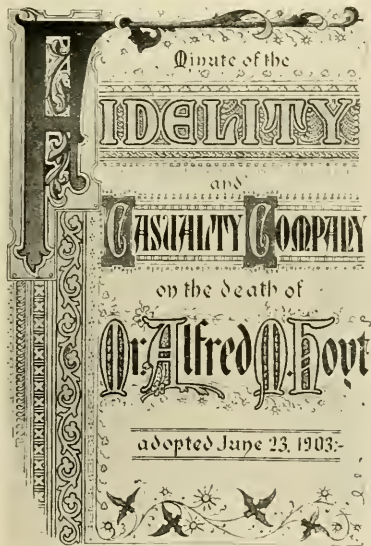 Minute of the
FIDELITY
and
CASUALTY COMPANY
on the death of
Mr. Alfred M. Hoyt
adopted June 23, 1903:-